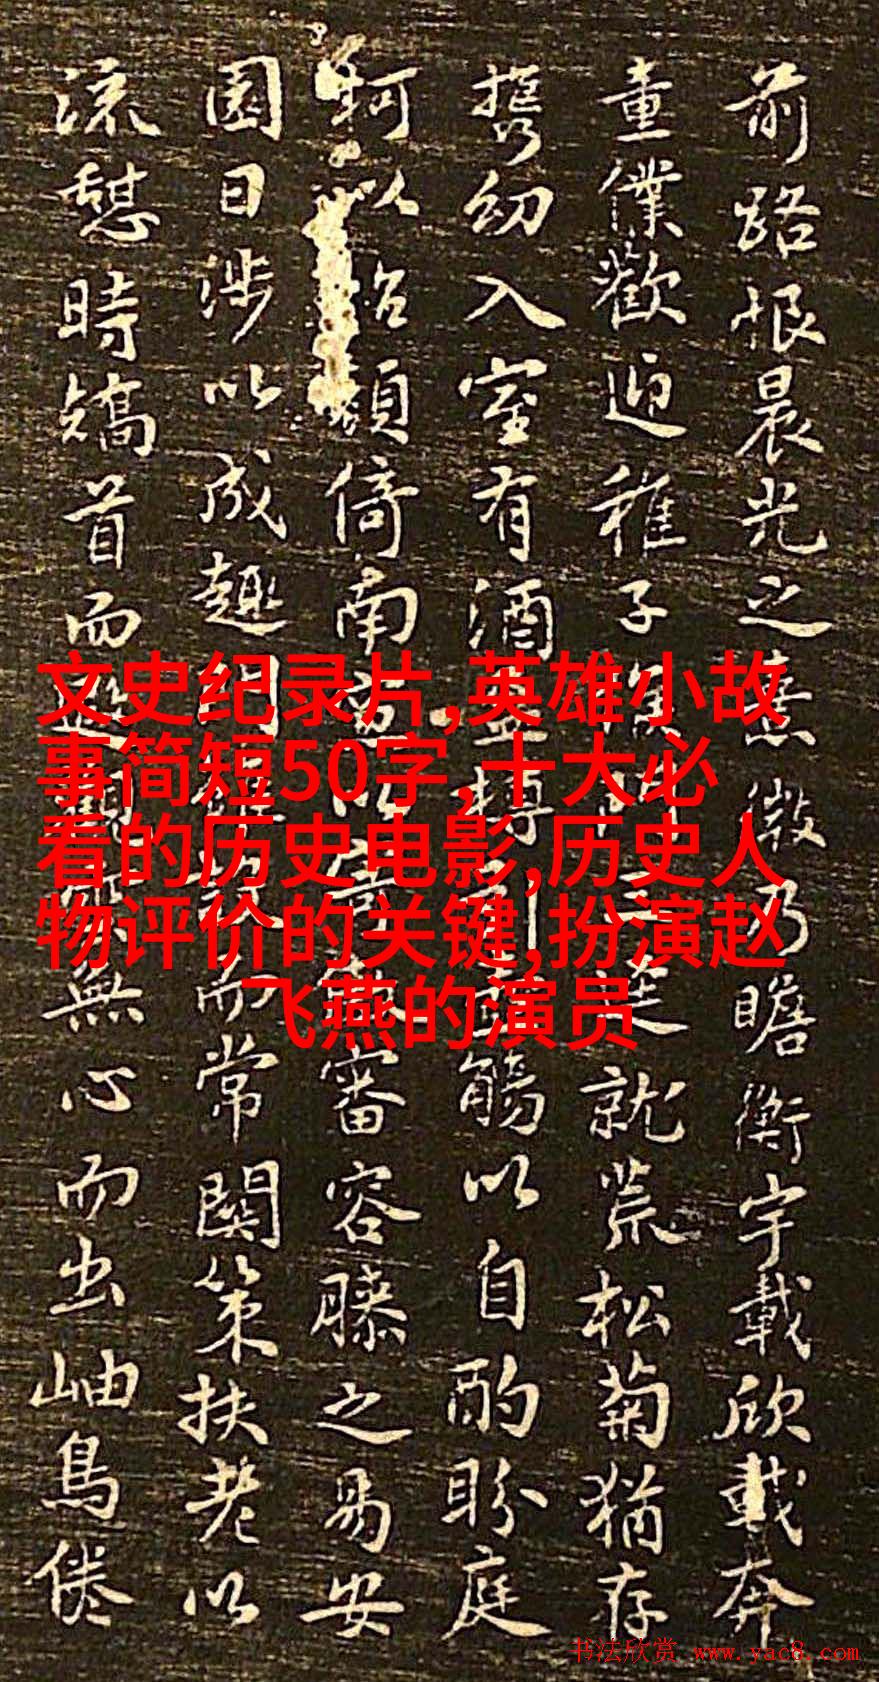 前路恨晨光之熹微乃瞻衡宇載欣載奔
童僕歡迎稚子候門三逕就荒松菊猶存
携幼入室有酒盈樽引壺觴以自酌盼庭
柯以怡顏倚南窗以寄傲審容膝之易安
園日涉以成趣門雖設而常關策扶老以
流憩時矯首而遐觀雲無心而出岫鳥倦
文史纪录片,英雄小故
事简短50字,十大必
看的历史电影,历史人
物评价的关键,扮演赵
飞燕的演员
书法欣赏 www.yac8.com